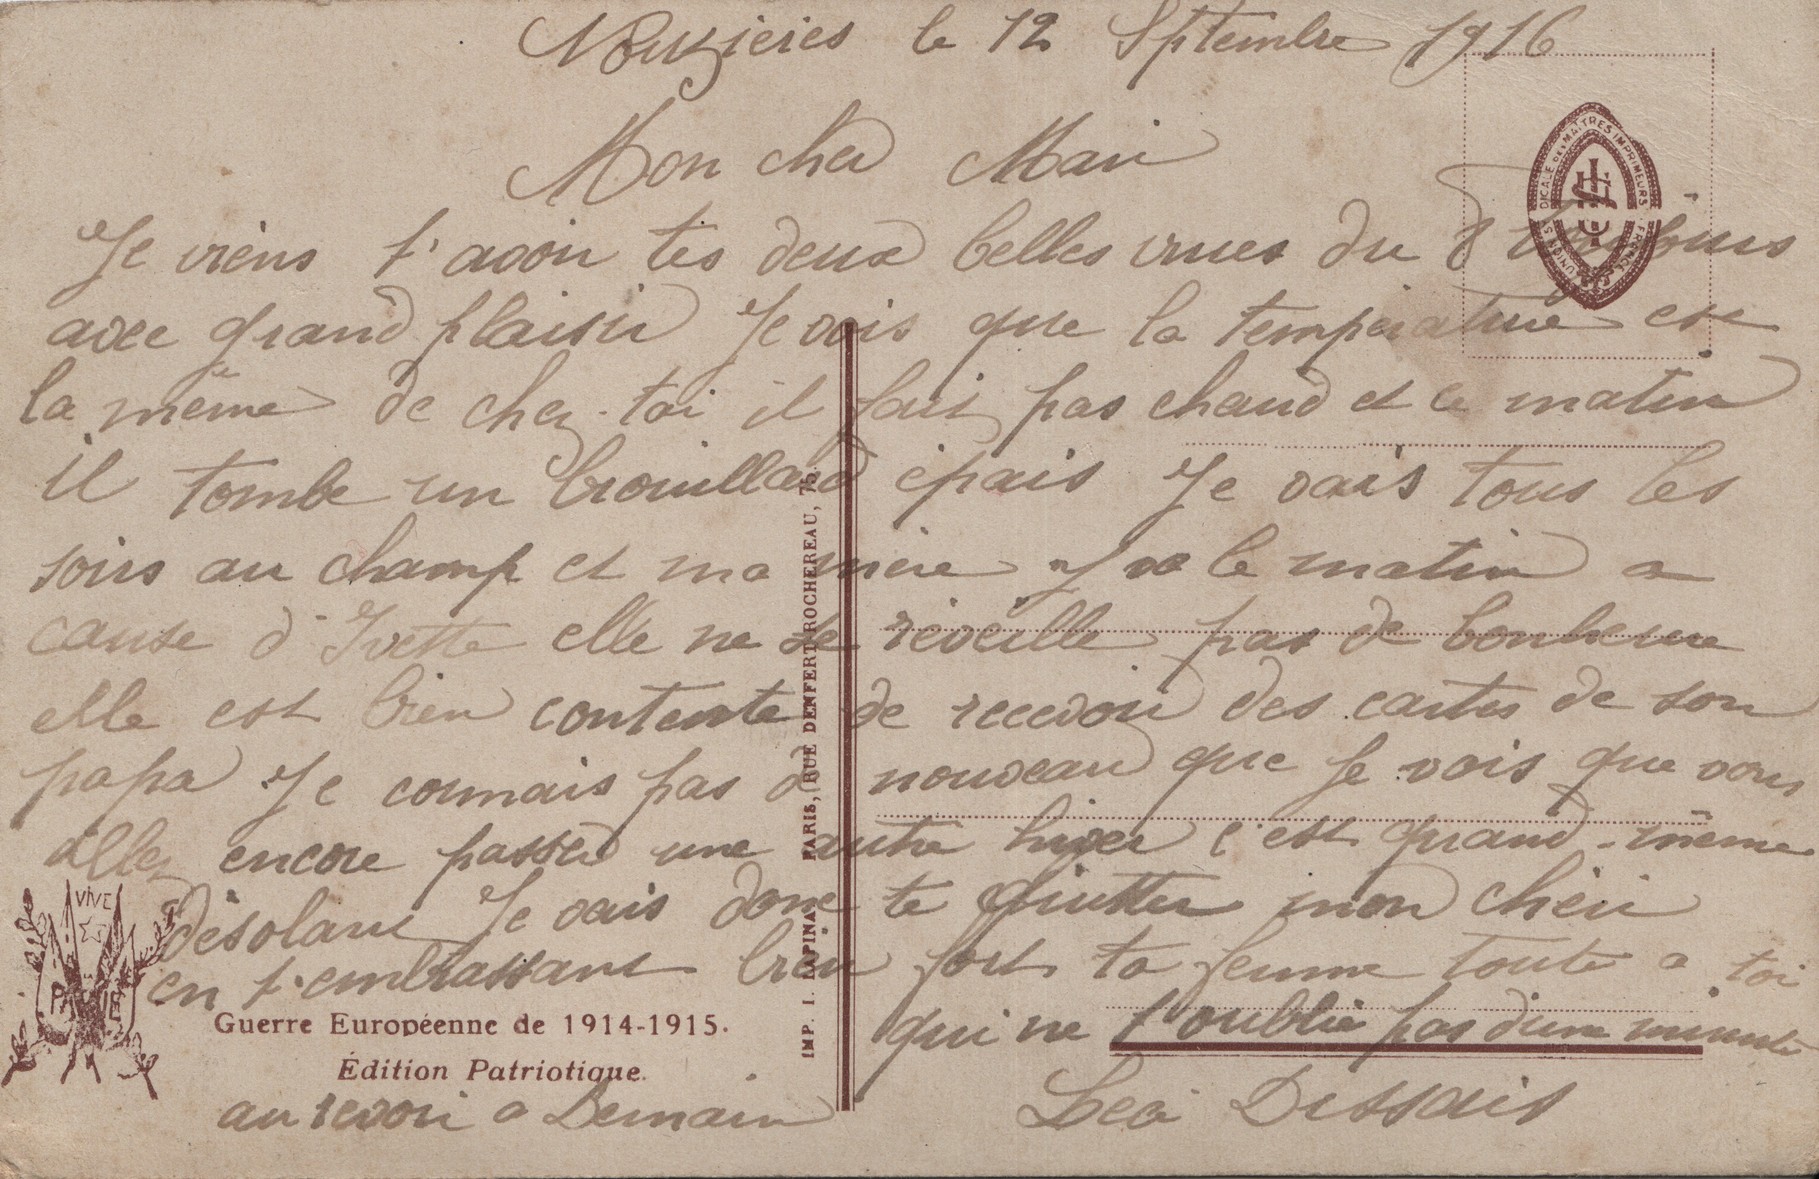 Nouzieres le 12 Septembre 1916
Mon cher Mari
Je viens t'avoir tes deux belles vues du 8 toujours
avec grand plaisir Je vois que la température est
la même de chez-toi il fait pas chaud et le matin
il tombe un brouillard épais Je vais tous les
soirs au champ et ma mère y va le matin a
cause d'Ivette elle ne se réveille pas de bonheure
elle est bien contente de recevoir des cartes de son
papa Je connais pas d nouveau que Je vois que vous
allez encore passer une autre hiver c'est quand-même
désolant Je vais donc te quitter mon chéri
en t'embrassant bien fort ta femme toute a toi
qui ne t'oublie pas d'une minute
au revoir a Demain
Léa Dessais
Guerre Européenne de 1914-1915.
Édition Patriotique.
VIVE
PATRIE
IMP. I. LAPINA PARIS, RUE DENFERT-ROCHEREAU, 75.
UNION SYNDICALE DES MAITRES IMPRIMEURS FRANCE